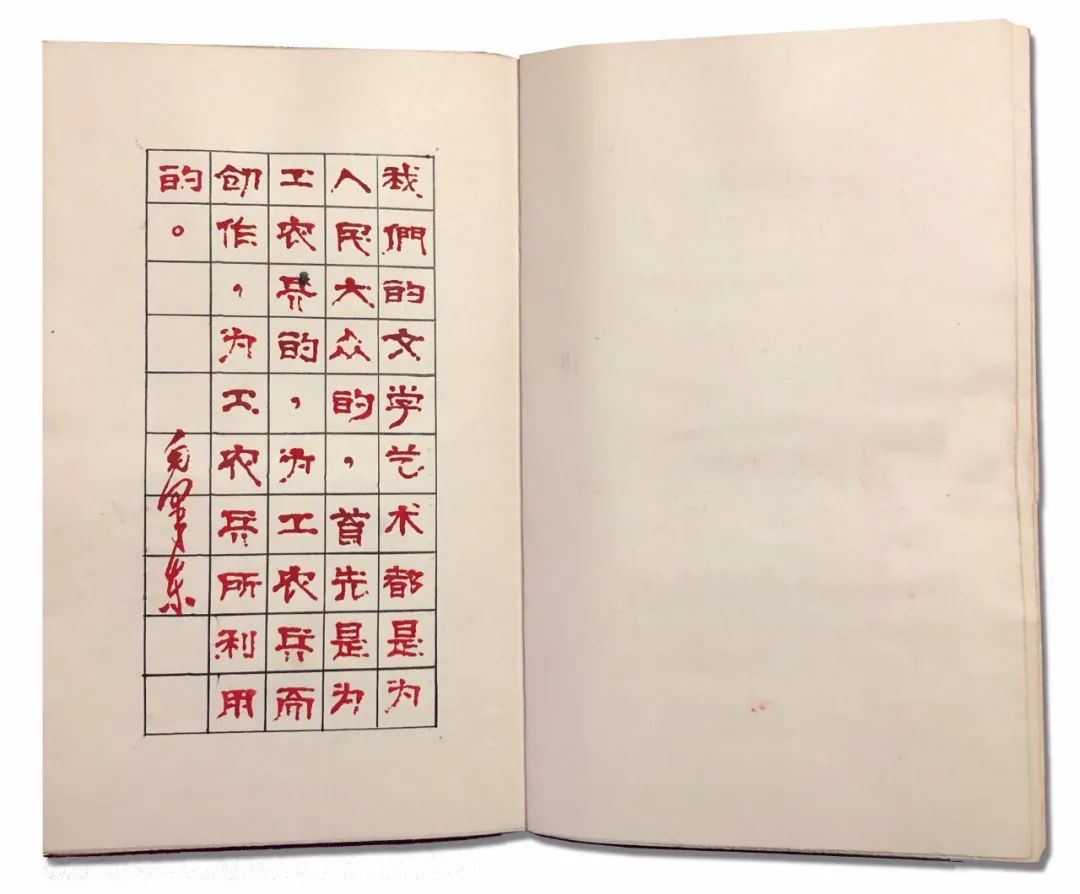 我們的文学艺术都是为
人民大众的，首先是为
工农兵的，为工农兵而
创作，为工农兵所利用
的。
毛泽东